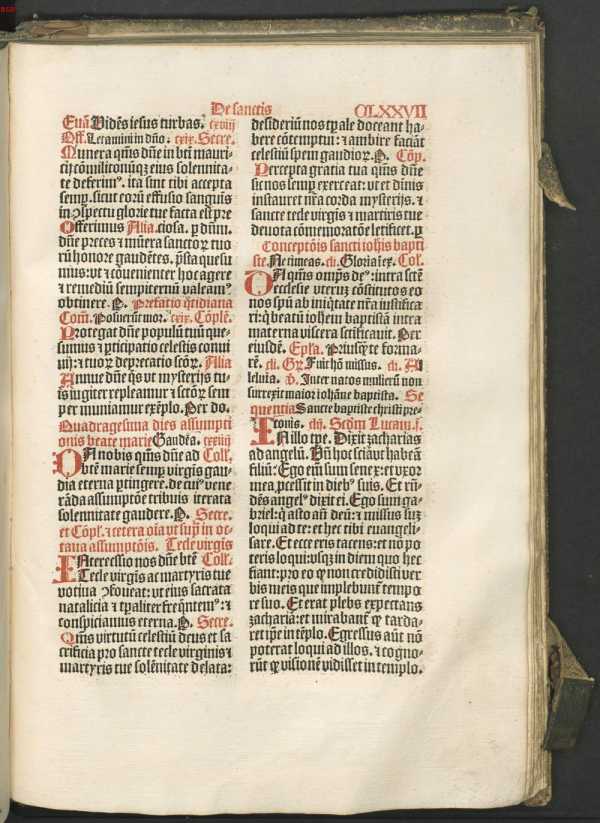 De sanctis CLXXVII
Euā. Vidēs iesus turbas. cxviij
Off. Letamini in dño. cxix. Secre.
Munera qm̄s dñe in btī mauri-
tij cōmilitonūqꝫ eius solennita-
te deferimꝰ. ita sint tibi accepta
semꝑ. sicut eorū effusio sanguis
in ꝯspectu glorie tue facta est pre
Offerimus Alia. ciosa. ꝑ dūm.
dñe preces ⁊ mūera sanctoꝝ tuo
rū honore gaudētes. ꝑsta quesu
mus: vt ⁊ cōuenienter hoc agere
⁊ remediū sempiternū valeamꝰ
obtinere. P. Prefatio q̄tidiana
Com̄. Posuerūt mor. cxix. Cōplē.
Protegat dñe populū tuū que-
sumus ꝑticipatio celestis conui
uij: ⁊ tuoꝝ deprecatio scōꝝ. Alia
Annue dñe q̄s vt mysterijs tu-
is iugiter repleamur ⁊ sctōꝝ sem
per muniamur exēplo. Per do.
Quadragesima dies assumpti
onis beate marie Gaudea. cxxiiij
DA nobis qm̄s dñe ad Coll.
btē marie semꝑ virgīs gau-
dia eterna ꝑtingere. de cuiꝰ vene
rāda assumptōe tribuis iterata
solennitate gaudere. P. Secre.
et Cōpl. ⁊ cetera oīa vt supͣ in oc-
taua assumptōis. Tecle virgīs
INtercessio nos dñe btē Coll.
Tecle virgīs ac martyris tue
votiua ꝯfoueat: vt eius sacrata
natalicia ⁊ tꝑaliter freq̄ntemꝰ: ⁊
conspiciamus eterna. P. Secre.
Qm̄s virtutū celestiū deus et sa
crificia pro sancte tecle virginis ⁊
martyris tue solēnitate delata:
desideriū nos tꝑale doceant ha-
bere cōtemptui: ⁊ ambire faciāt
celestiū spem gaudioꝝ. P. Cōp.
Percepta gratia tua qm̄s dñe
sic nos semꝑ exerceat: vt et diuīs
instauret nr̄a corda mysterijs: ⁊
sancte tecle virgīs ⁊ martiris tue
deuota cōmemoratōe letificet. ꝑ
Conceptōis sancti iohīs bapti
ste. Ne timeas. cli. Gloria ⁊ ex. Col.
OAqm̄s omps dꝰ: intra sctē
ecclesie vterum cōstitutos eo
nos spū ab iniq̄tate nr̄a iustifica
ri: q̄ beatū iohem baptistā intra
materna viscera sctificauit. Per
eiusdē. Epl̄a. Priusq̄ te forma-
rē. cli. Gꝝ Fuit hō missus. cli. A
leluia. v̄. Inter natos mulierū non
surrexit maior iohāne baptista. Se
quentia Sancte baptiste christi pre-
conis. clij. Scdm̄ Lucam. j.
IN illo tꝑe. Dixit zacharias
ad angelū. Vn̄ hoc sciā: vt habeā
filiū: Ego em̄ sum senex: et vxor
mea ꝓcessit in diebꝰ suis. Et rn̄-
dēs angelꝰ dixit ei. Ego sum ga-
briel: q̄ asto añ deū: ⁊ missus suꝫ
loqui ad te: et hec tibi euangeli-
sare. Et ecce eris tacens: et nō po
teris loqui: vsqꝫ in diem quo hec
fiant: pro eo ꝙ non credidisti ver
bis meis que implebunt̄ in tempo
re suo. Et erat plebs expectans
zachariā: et mirabant̄ ꝙ tarda-
ret ipe in tēplo. Egressus aūt nō
poterat loqui ad illos. ⁊ cogno-
rūt ꝙ visionē vidisset in templo.